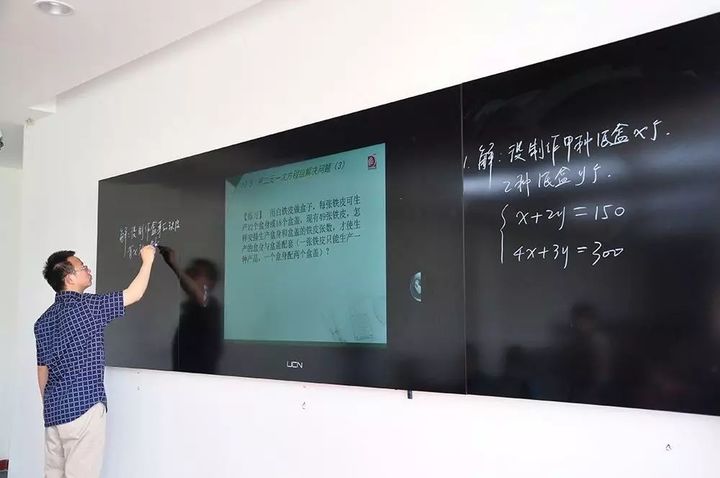 解：设制作
用二元一次方程组解决问题（3）
【练习】 用白铁皮做盒子，每张铁皮可生
产12个盒身或18个盒盖，现有49张铁皮，怎
样安排生产盒身和盒盖的铁皮张数，才使生
产的盒身与盒盖配套（一张铁皮只能生产一
种产品，一个盒身配两个盒盖）？
UCN
1. 解：设制作甲种纸盒x个.
乙种纸盒y个.
x+2y=150
4x+3y=300